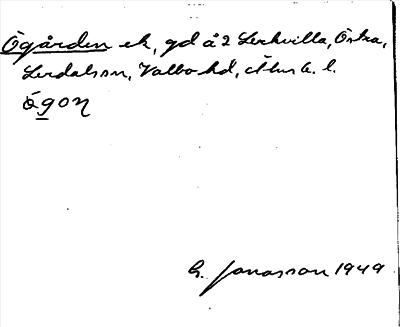 Ögården ek, gd å 2 Lerkvilla, Östra,
Lerdalssn, Valbo hd, Älvsb. l.
ögon
G. Jonasson 1949